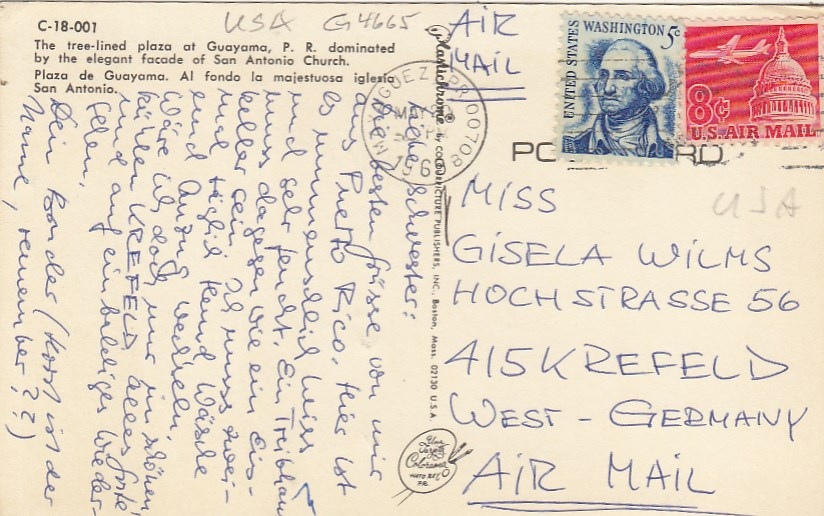 USA G4665
C-18-001
The tree-lined plaza at Guayama, P. R. dominated
by the elegant facade of San Antonio Church.
Plaza de Guayama. Al fondo la majestuosa iglesia
San Antonio.
AIR
MAIL
UNITED STATES
WASHINGTON 5c
8c
U.S. AIR MAIL
MAYAGUEZ, P.R. 00708
MAY
196
Plastichrome® by COLOURPICTURE PUBLISHERS, INC., Boston, Mass. 02130 U.S.A.
USA
Liebe Schwester:
Die besten Grüsse von mir
aus Puerto Rico. Hier ist
es unmenschlich heiss
und sehr feucht. Ein Treibhaus
muss dagegen wie ein Eis-
keller sein. Ich muss zwei-
mal täglich Hemd Wäsche
und Anzug wechseln.
Wäre ich doch nur im schönen
kühlen KREFELD. Alles Gute
und auf ein baldiges Wieder-
sehen.
Dein Bruder (Horst ist der
Name, remember??)
MISS
GISELA WILMS
HOCHSTRASSE 56
415 KREFELD
WEST - GERMANY
AIR MAIL
HATO REY
P.R.